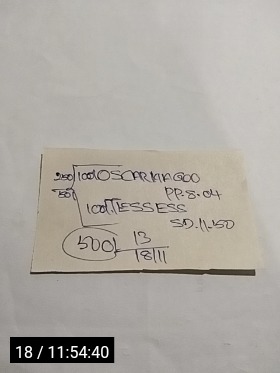 250 100/OSCARMAGOO
50/ PP.8.04
100/JESSESS
SD.11.50
500/ 13
18/11
18 / 11:54:40